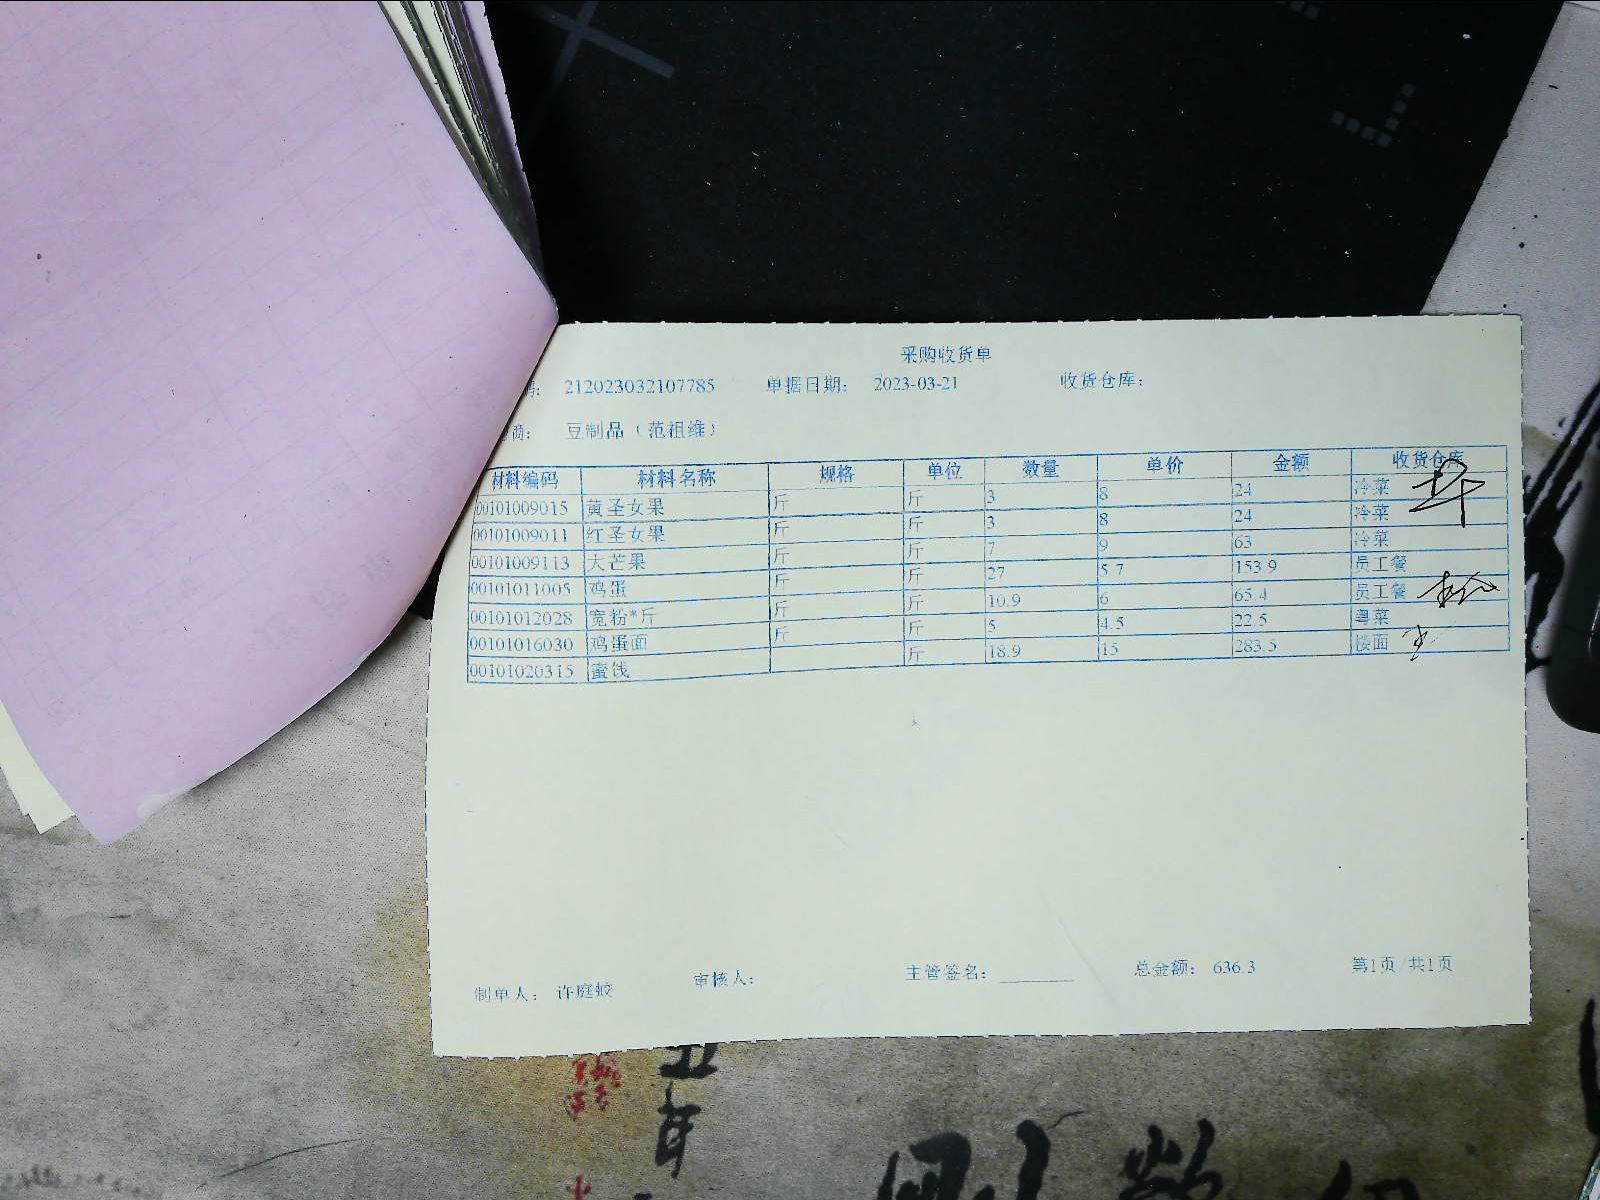 采购收货单
码： 212023032107785 单据日期： 2023-03-21 收货仓库：
商： 豆制品（范祖维）
材料编码 材料名称 规格 单位 数量 单价 金额 收货仓库
00101009015 黄圣女果 斤 斤 3 8 24 冷菜
00101009011 红圣女果 斤 斤 3 8 24 冷菜
00101009113 大芒果 斤 斤 7 9 63 冷菜
00101011005 鸡蛋 斤 斤 27 5.7 153.9 员工餐
00101012028 宽粉*斤 斤 斤 10.9 6 65.4 员工餐
00101016030 鸡蛋面 斤 斤 5 4.5 22.5 粤菜
00101020315 蜜饯 斤 18.9 15 283.5 楼面
制单人： 许庭蛟 审核人： 主管签名： 总金额： 636.3 第1页/共1页